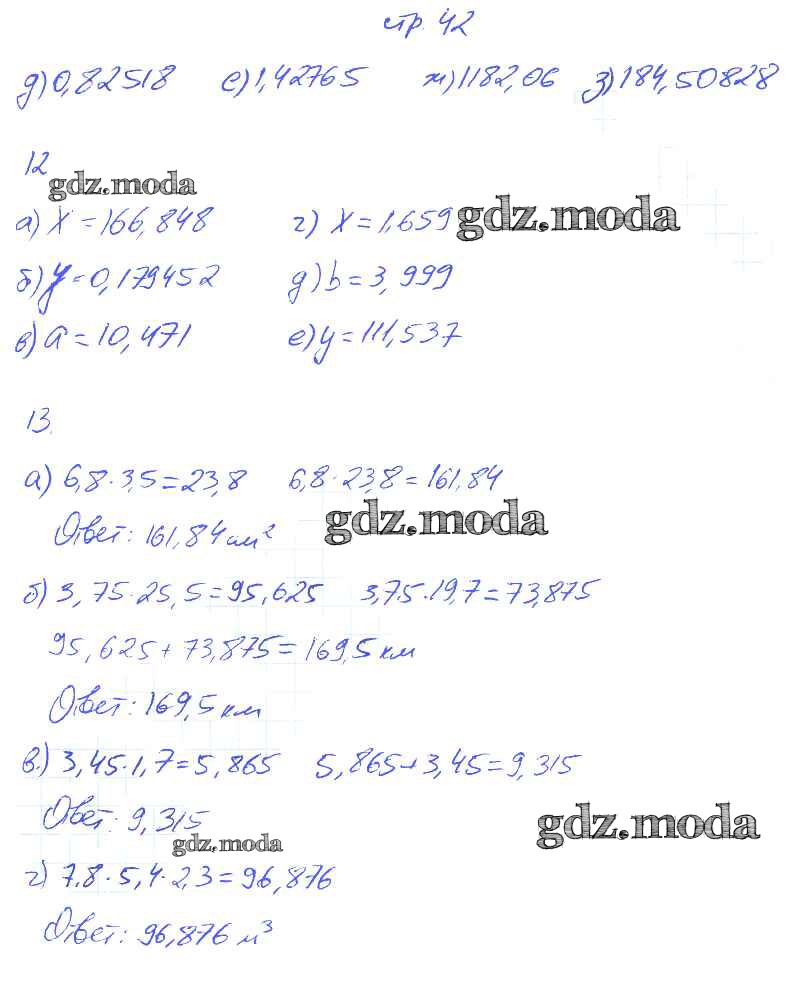 стр. 42
д) 0,82518 е) 1,42765 ж) 1182,06 з) 184,50828
12
gdz.moda
а) X = 166,848 г) X = 1,659 gdz.moda
б) y = 0,179452 д) b = 3,999
в) a = 10,471 е) y = 111,537
13.
а) 6,8 · 3,5 = 23,8 6,8 · 23,8 = 161,84
gdz.moda
Ответ: 161,84 см²
б) 3,75 · 25,5 = 95,625 3,75 · 19,7 = 73,875
95,625 + 73,875 = 169,5 км
Ответ: 169,5 км
в.) 3,45 · 1,7 = 5,865 5,865 + 3,45 = 9,315
Ответ: 9,315
gdz.moda
gdz.moda
г) 7,8 · 5,4 · 2,3 = 96,876
Ответ: 96,876 м³